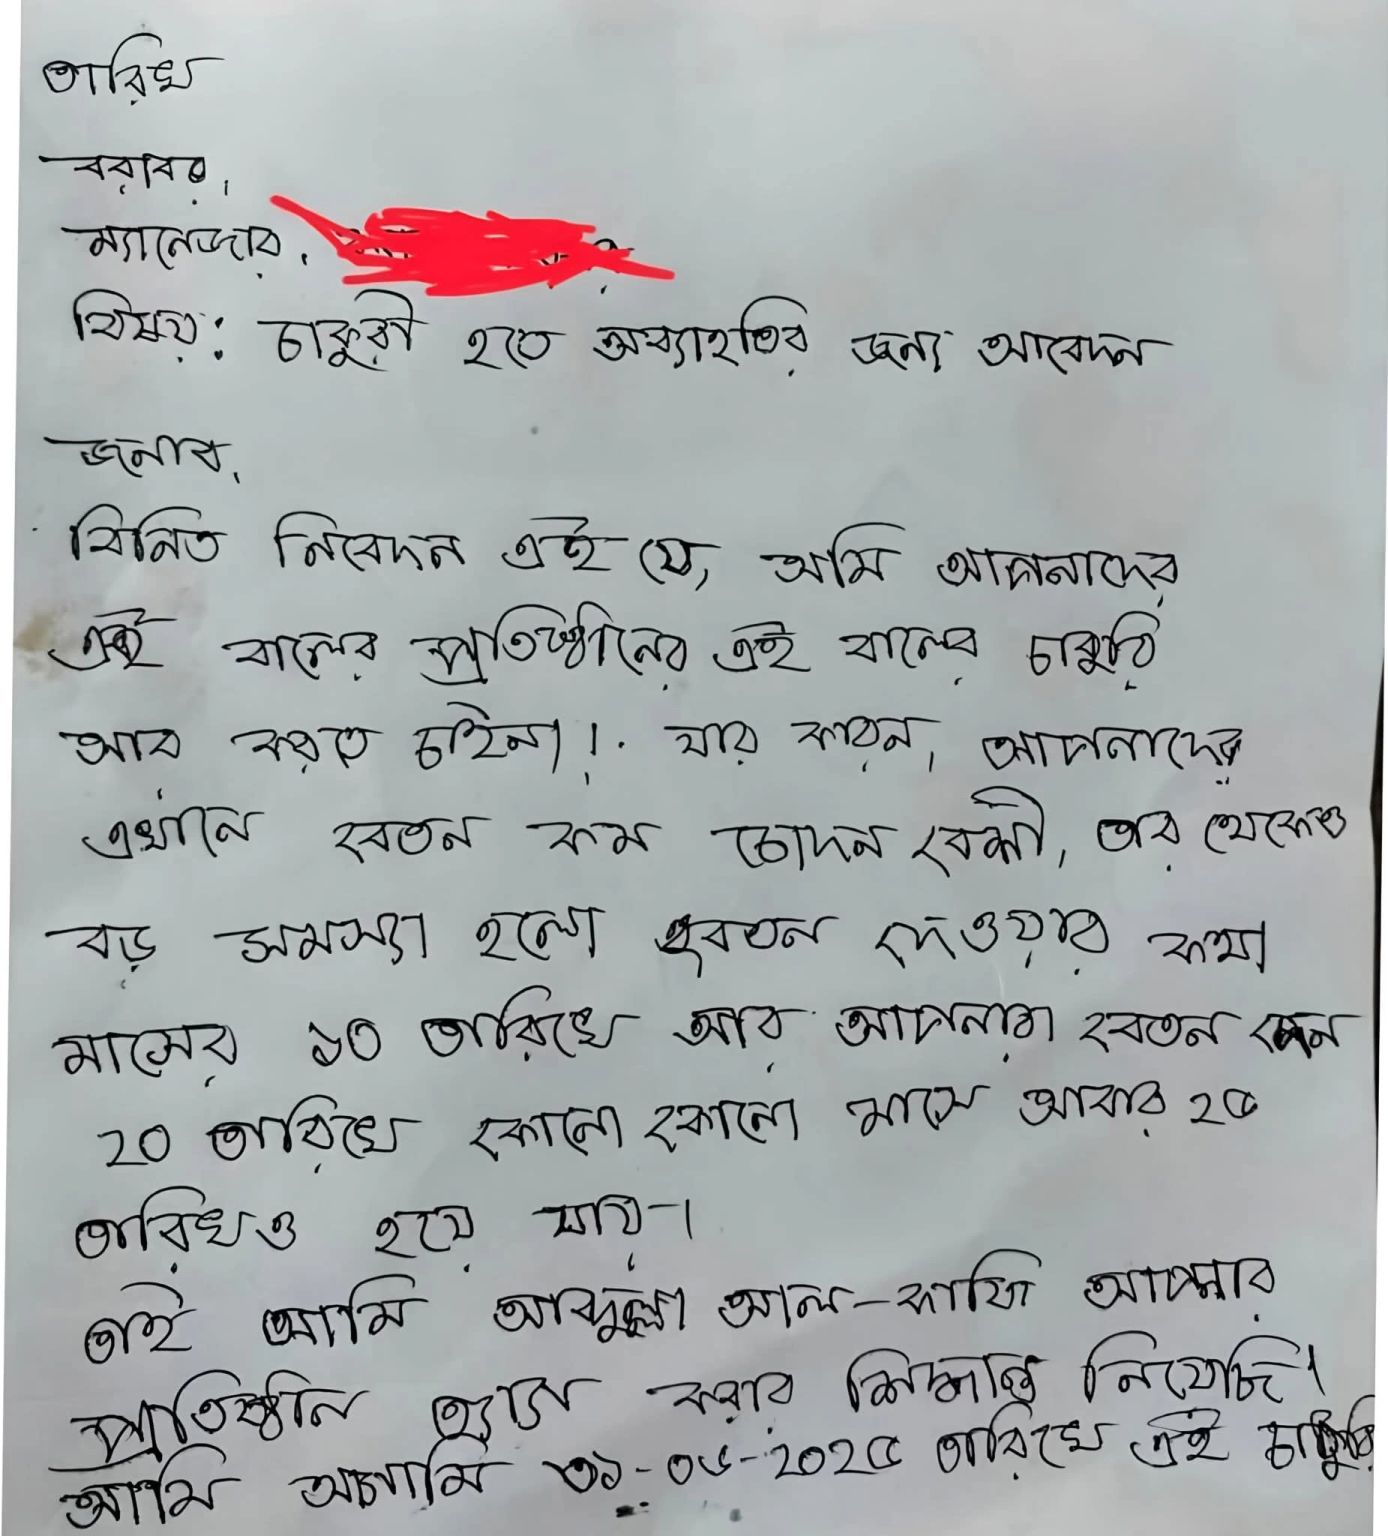 তারিখ
বরাবর,
ম্যানেজার,
বিষয়: চাকুরী হতে অব্যাহতির জন্য আবেদন
জনাব,
বিনিত নিবেদন এই যে, আমি আপনাদের
এই বালের প্রতিষ্ঠানের এই বালের চাকুরি
আর করতে চাইনা। যার কারন, আপনাদের
এখানে বেতন কম চোদন বেশী, তার থেকেও
বড় সমস্যা হলো বেতন দেওয়ার কথা
মাসের ১০ তারিখে আর আপনারা বেতন দেন
২০ তারিখে কোনো কোনো মাসে আবার ২৫
তারিখও হয়ে যায়।
তাই আমি আব্দুল্লা আল-কাফি আপনার
প্রতিষ্ঠান ত্যাগ করার সিদ্ধান্ত নিয়েছি।
আমি আগামি ৩১-০৮-২০২৫ তারিখে এই চাকুরি